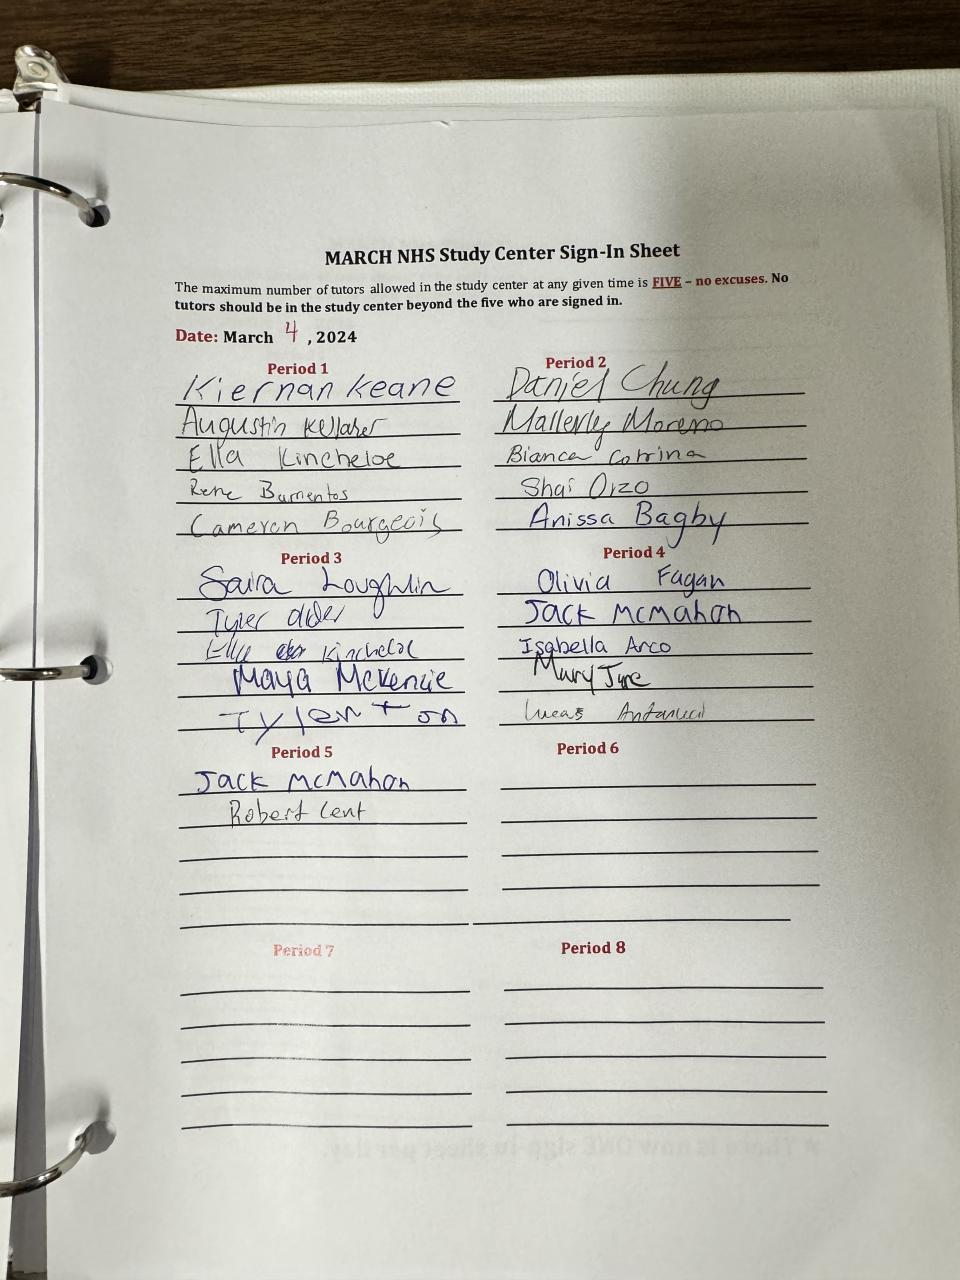 MARCH NHS Study Center Sign-In Sheet
The maximum number of tutors allowed in the study center at any given time is FIVE – no excuses. No
tutors should be in the study center beyond the five who are signed in.
Date: March 4, 2024
Period 1
Kiernan Keane
Augustin
Ella Kincheloe
Rene
Cameron Bourgeois
Period 2
Daniel Chung
Mallerly Moreno
Bianca Cotrina
Shai Orzo
Anissa Bagby
Period 3
Saira Loughlin
Tyler
Kincheloe
Maya McKenzie
Tylen
Period 4
Olivia Fagan
Jack McMahon
Isabella Arco
Mary
Lucas
Period 5
Jack McMahon
Robert Cent
Period 6
Period 7
Period 8
★ There is now ONE sign-in sheet per day.